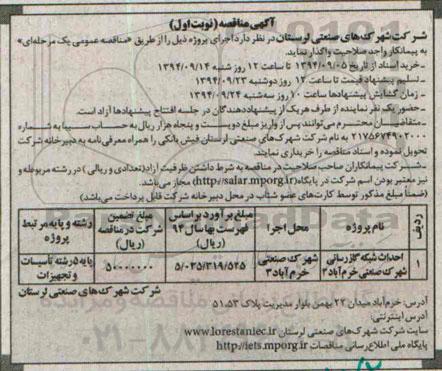 آگهی مناقصه (نوبت اول)
شرکت شهرک‌های صنعتی لرستان در نظر دارد اجرای پروژه ذیل را از طریق «مناقصه عمومی یک مرحله‌ای»
به پیمانکار واجد صلاحیت واگذار نماید.
- خرید اسناد از تاریخ ۱۳۹۴/۰۹/۰۵ تا ساعت ۱۲ روز شنبه ۱۳۹۴/۰۹/۱۴
- تسلیم پیشنهاد قیمت تا ساعت ۱۲ روز دوشنبه ۱۳۹۴/۰۹/۲۳
- زمان گشایش پیشنهادها ساعت ۱۰ روز سه‌شنبه ۱۳۹۴/۰۹/۲۴
- حضور یک نفر نماینده از طرف هر یک از پیشنهاددهندگان در جلسه افتتاح پیشنهادها آزاد است.
- متقاضیان محترم می‌توانند پس از واریز مبلغ دویست و پنجاه هزار ریال به حساب سیبا به شماره
۲۱۷۵۶۷۴۹۰۲۰۰۰ به نام شرکت شهرک‌های صنعتی لرستان فیش بانکی را همراه معرفی‌نامه به دبیرخانه شرکت
تحویل نموده و اسناد مناقصه را خریداری نمایند.
- شرکت پیمانکاران صاحب صلاحیت در مناقصه به شرط داشتن ظرفیت آزاد (تعدادی و ریالی) در رشته مربوطه و
نیز معتبر بودن اسم شرکت در پایگاه (http://salar.mporg.ir) مجاز می‌باشد.
(ضمناً مبلغ مذکور توسط کارت‌های عضو شتاب در محل دبیرخانه شرکت قابل پرداخت می‌باشد)
ردیف نام پروژه محل اجرا مبلغ برآورد براساس فهرست بها سال ۹۴ (ریال) مبلغ تضمین شرکت در مناقصه (ریال) رشته و پایه مرتبط پروژه
۱ احداث شبکه گازرسانی شهرک صنعتی خرم‌آباد ۳ شهرک صنعتی خرم‌آباد ۳ ۵/۰۲۵/۳۱۹/۵۲۵ ۵۰۰۰۰۰۰۰ پایه ۵ رشته تأسیسات و تجهیزات
شرکت شهرک‌های صنعتی لرستان
آدرس: خرم‌آباد میدان ۲۲ بهمن بلوار مدیریت پلاک ۵۱.۵۳
آدرس اینترنتی:
سایت شرکت شهرک‌های صنعتی لرستان www.lorestaniec.ir
پایگاه ملی اطلاع‌رسانی مناقصات http://iets.mporg.ir